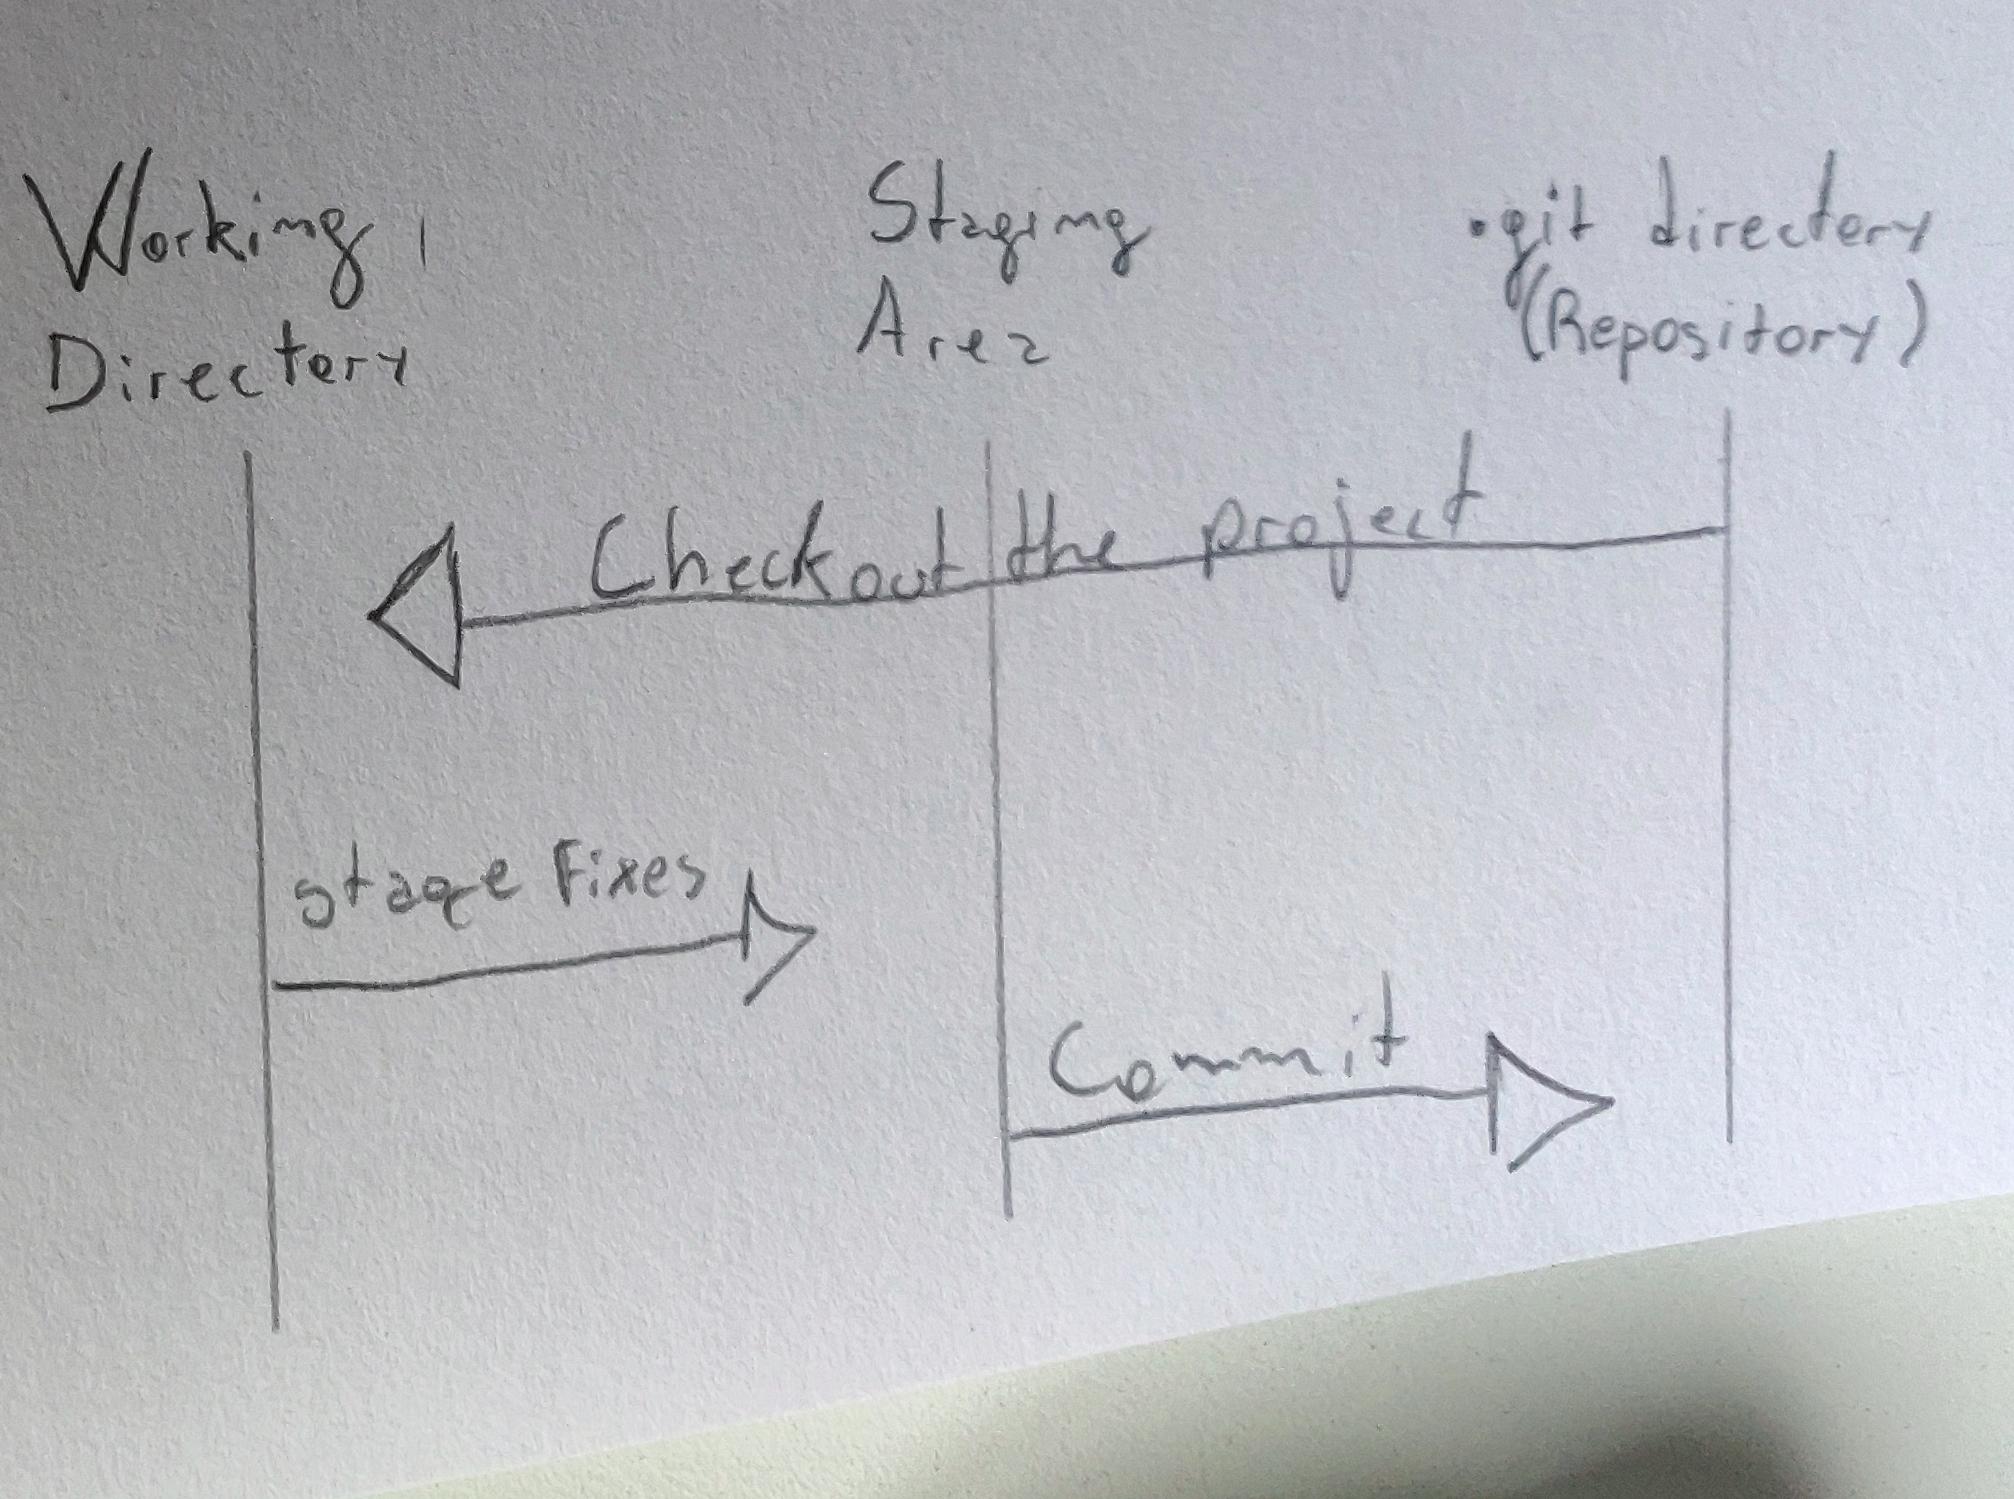 Working
Directory
Staging
Area
.git directory
(Repository)
Checkout the project
stage Fixes
Commit